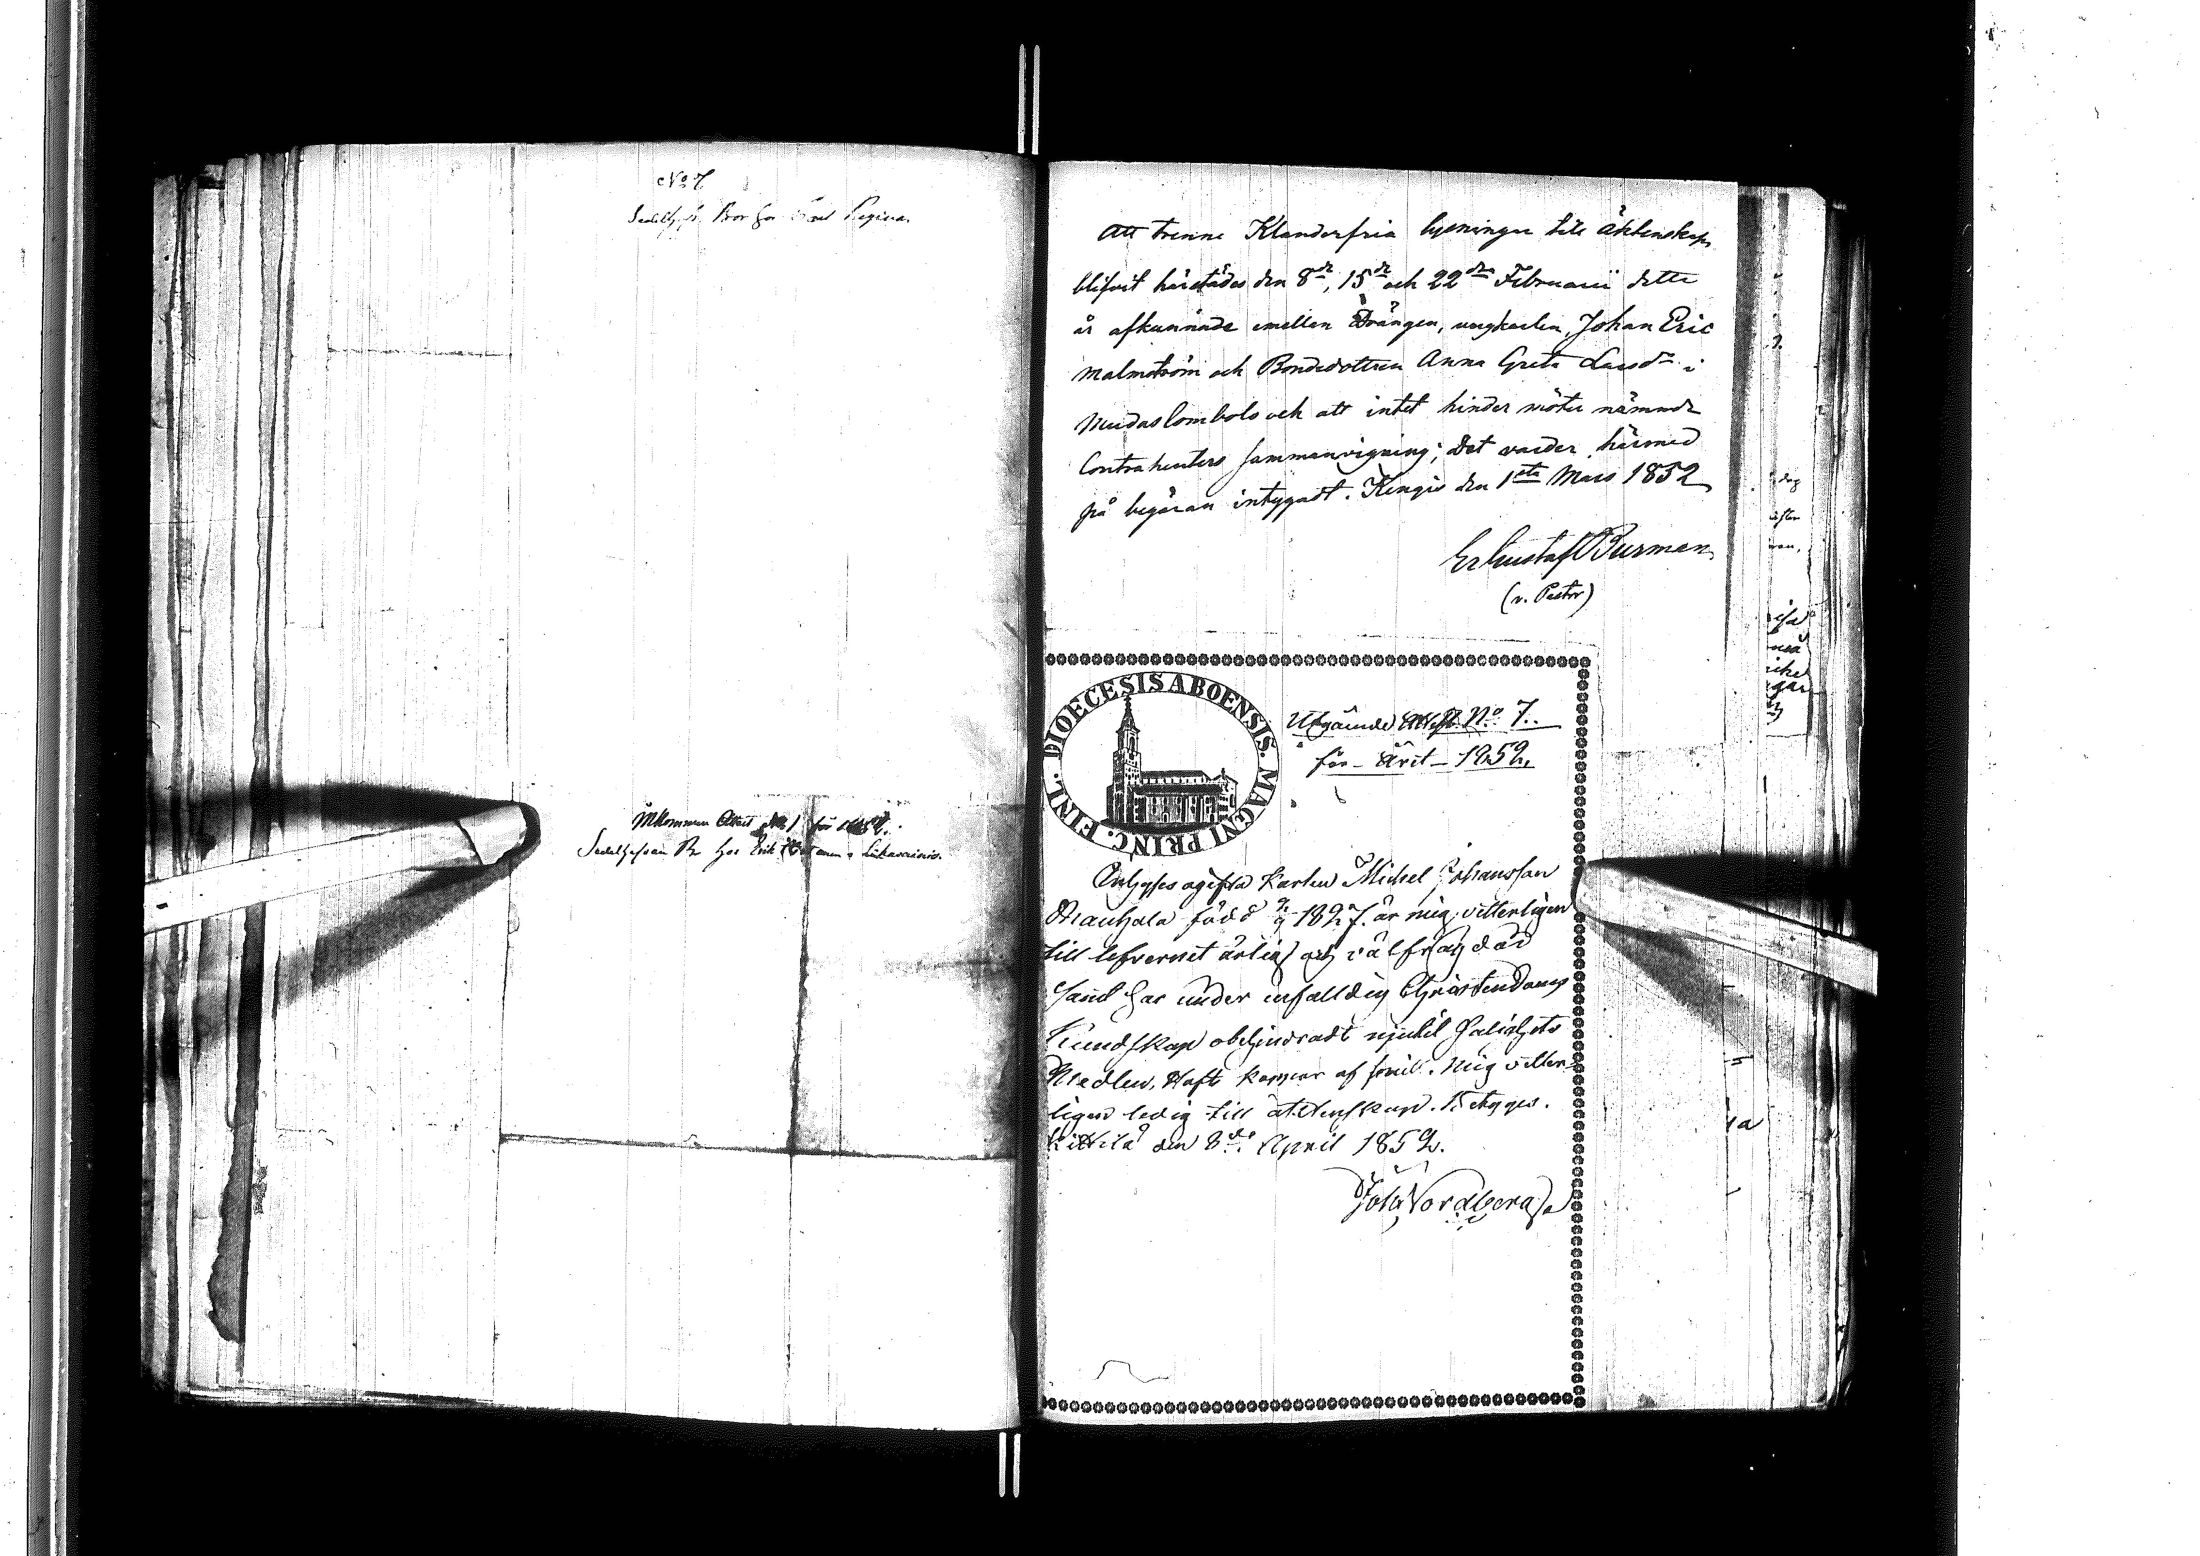 No 7
Bor hos Regina.
Inkommen Attest No 1 för 1852.
Sedelhafvan Br hos Erik
Att trenne Klanderfria lysningar till Äktenskap
blifvit härstädes den 8de, 15de och 22dra Februarii detta
år afkunnade emellan Drängen, ungkarlen, Johan Eric
Malmström och Bondedottren Anna Greta Larsdr i
Muodoslombolo och att intet hinder möter nämnde
Contrahenters sammanvigning; Det varder härmed
på begäran intygadt. Kengis den 1sta Mars 1852
Er Gustaf Burman
(v. Pastor)
DIOECESIS ABOENSIS. MAGNI PRINC. FINL.
Utgående Attest No 7.
för året 1852.
ogifta Karlen Michel Johansson
född 1827. är mig vitterligen
till lefvernet ärlig och välfrägdad
samt har under enfalldig Christendoms
Kundskap obehindradt njutit Salighets
Medlen. Haft koppor af smitt. Mig vitter-
ligen ledig till ächtenskap. Betygas.
Kittilä den 8de April 1852.
Joh Nordberg